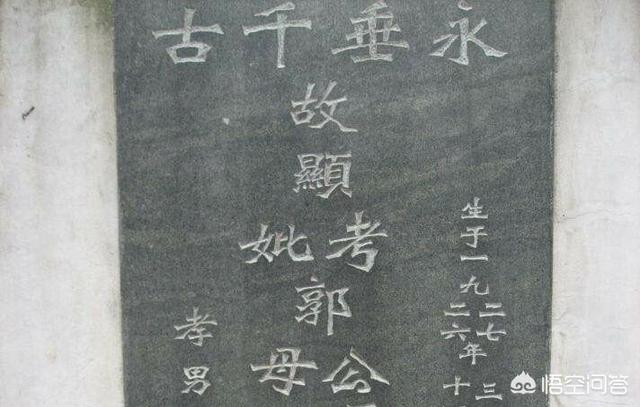 永垂千古
生于一九
二七 三
二六年十
故顯
考 公
妣 母
郭
孝男
悟空问答